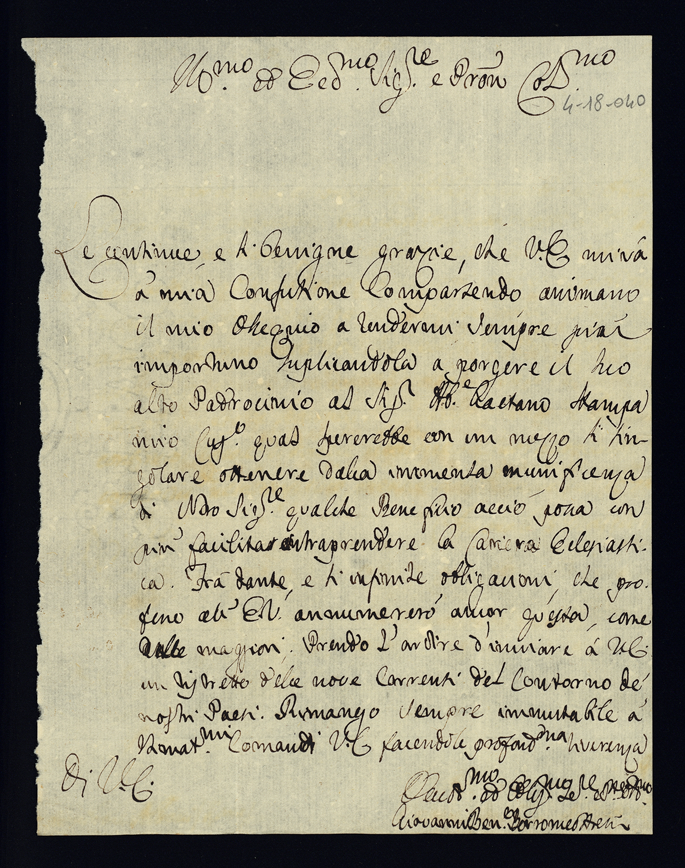 Ill.mo ed Ecc.mo Sig.re e Pron Col.mo
4-18-040
Le continue, e sì benigne grazie, che V.E. mi và
à mia Confusione Compartendo animano
il mio Ossequio a rendermi sempre più
importuno suplicandola a porgere il suo
alto Padrocinio al Sig.r Ab.e Gaetano Stampa
mio Cug.o qual spererebbe con un mezzo sì sin-
golare ottenere dalla immensa munificenza
di Nro Sig.re qualche Beneficio acciò possa con
più facilità intraprendere la Cariera Eclesiasti-
ca. Frà tante, e sì infinite obligazioni, che pro-
feso all' E.V. annumererò ancor questa, come
delle maggiori. Prendo l'ardire d'inviare à V.E.
un ristretto delle nove Correnti del Contorno de
nostri Paesi. Rimango sempre immutabile à
Comandi V.E. facendole profond.ma riverenza
Di V.E.
Giovanni Ben. Borromeo Arese